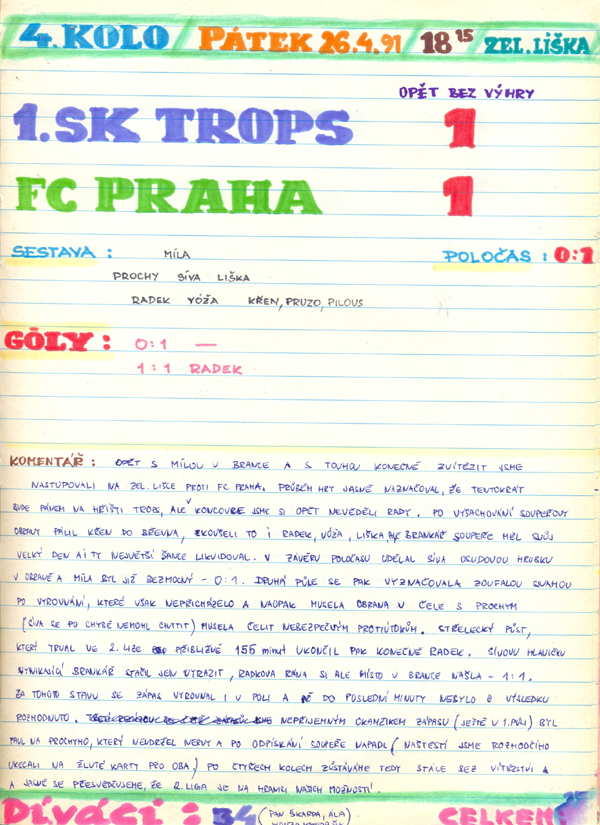 4. KOLO / PÁTEK 26.4.91 / 18 15 / ZEL. LIŠKA
OPĚT BEZ VÝHRY
1. SK TROPS 1
FC PRAHA 1
SESTAVA : MÍLA POLOČAS : 0:1
PROCHY SÍVA LIŠKA
RADEK VÓŽA KŘEN, PRUZO, PILOUS
GÓLY : 0:1 —
1:1 RADEK
KOMENTÁŘ : OPĚT S MÍLOU V BRANCE A S TOUHOU KONEČNĚ ZVÍTĚZIT JSME
NASTUPOVALI NA ZEL. LIŠCE PROTI FC PRAHA. PRŮBĚH HRY JASNĚ NAZNAČOVAL, ŽE TENTOKRÁT
BUDE PÁNEM NA HŘIŠTI TROPS, ALE V KONCOVCE JSME SI OPĚT NEVĚDĚLI RADY. PO VYŠACHOVÁNÍ SOUPEŘOVY
OBRANY PÁLIL KŘEN DO BŘEVNA, ZKOUŠELI TO I RADEK, VÓŽA, LIŠKA ALE BRANKÁŘ SOUPEŘE MĚL SVŮJ
VELKÝ DEN A I TY NEJVĚTŠÍ ŠANCE LIKVIDOVAL. V ZÁVĚRU POLOČASU UDĚLAL SÍVA OSUDOVOU HRUBKU
V OBRANĚ A MÍLA BYL JIŽ BEZMOCNÝ - 0:1. DRUHÁ PŮLE SE PAK VYZNAČOVALA ZOUFALOU SNAHOU
PO VYROVNÁNÍ, KTERÉ VŠAK NEPŘICHÁZELO A NAOPAK MUSELA OBRANA V ČELE S PROCHYM
(SÍVA SE PO CHYBĚ NEMOHL CHYTIT) MUSELA ČELIT NEBEZPEČNÝM PROTIÚTOKŮM. STŘELECKÝ PŮST,
KTERÝ TRVAL VE 2. LIZE PŘIBLIŽNĚ 156 minut UKONČIL PAK KONEČNĚ RADEK. SÍVOVU HLAVIČKU
VYNIKAJÍCÍ BRANKÁŘ STAČIL JEN VYRAZIT, RADKOVA RÁNA SI ALE MÍSTO V BRANCE NAŠLA - 1:1.
ZA TOHOTO STAVU SE ZÁPAS VYROVNAL I V POLI A AŽ DO POSLEDNÍ MINUTY NEBYLO O VÝSLEDKU
ROZHODNUTO. NEPŘÍJEMNÝM OKAMŽIKEM ZÁPASU (JEŠTĚ V 1. PŮLI) BYL
FAUL NA PROCHYHO, KTERÝ NEUDRŽEL NERVY A PO ODPÍSKÁNÍ SOUPEŘE NAPADL (NAŠTĚSTÍ JSME ROZHODČÍHO
UKECALI NA ŽLUTÉ KARTY PRO OBA) PO ČTYŘECH KOLECH ZŮSTÁVÁME TEDY STÁLE BEZ VÍTĚZSTVÍ A
A JASNĚ SE PŘESVĚDČUJEME, ŽE 2. LIGA JE NA HRANICI NAŠICH MOŽNOSTÍ.
DIVÁCI : 34 (PAN ŠKARDA, ALA, CELKEM: